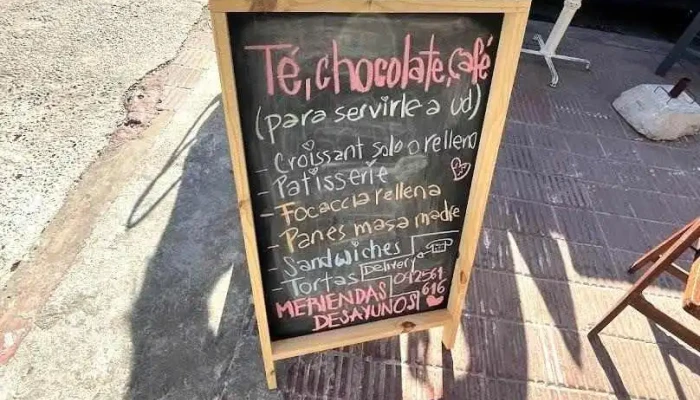 Té, chocolate, café
(para servirle a Ud)
- Croissant solo o relleno
- Patisserie
- Focaccia rellena
- Panes masa madre
- Sandwiches
- Tortas Delivery
MERIENDAS 092561
DESAYUNOS 616